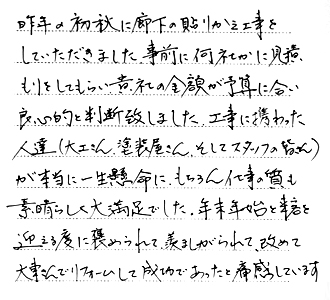 昨年の初秋に廊下の貼りかえ工事を
していただきました。事前に何社かに見積
もりをしてもらい貴社の金額が予算に合い
良心的と判断致しました。工事に携わった
人達(大工さん、塗装屋さん、そしてスタッフの皆さん)
が本当に一生懸命に、もちろん仕事の質も
素晴らしく大満足でした。年末年始と客を
迎える度に褒められて、羨ましがられて、改めて
大事さんでリフォームして成功であったと痛感しています